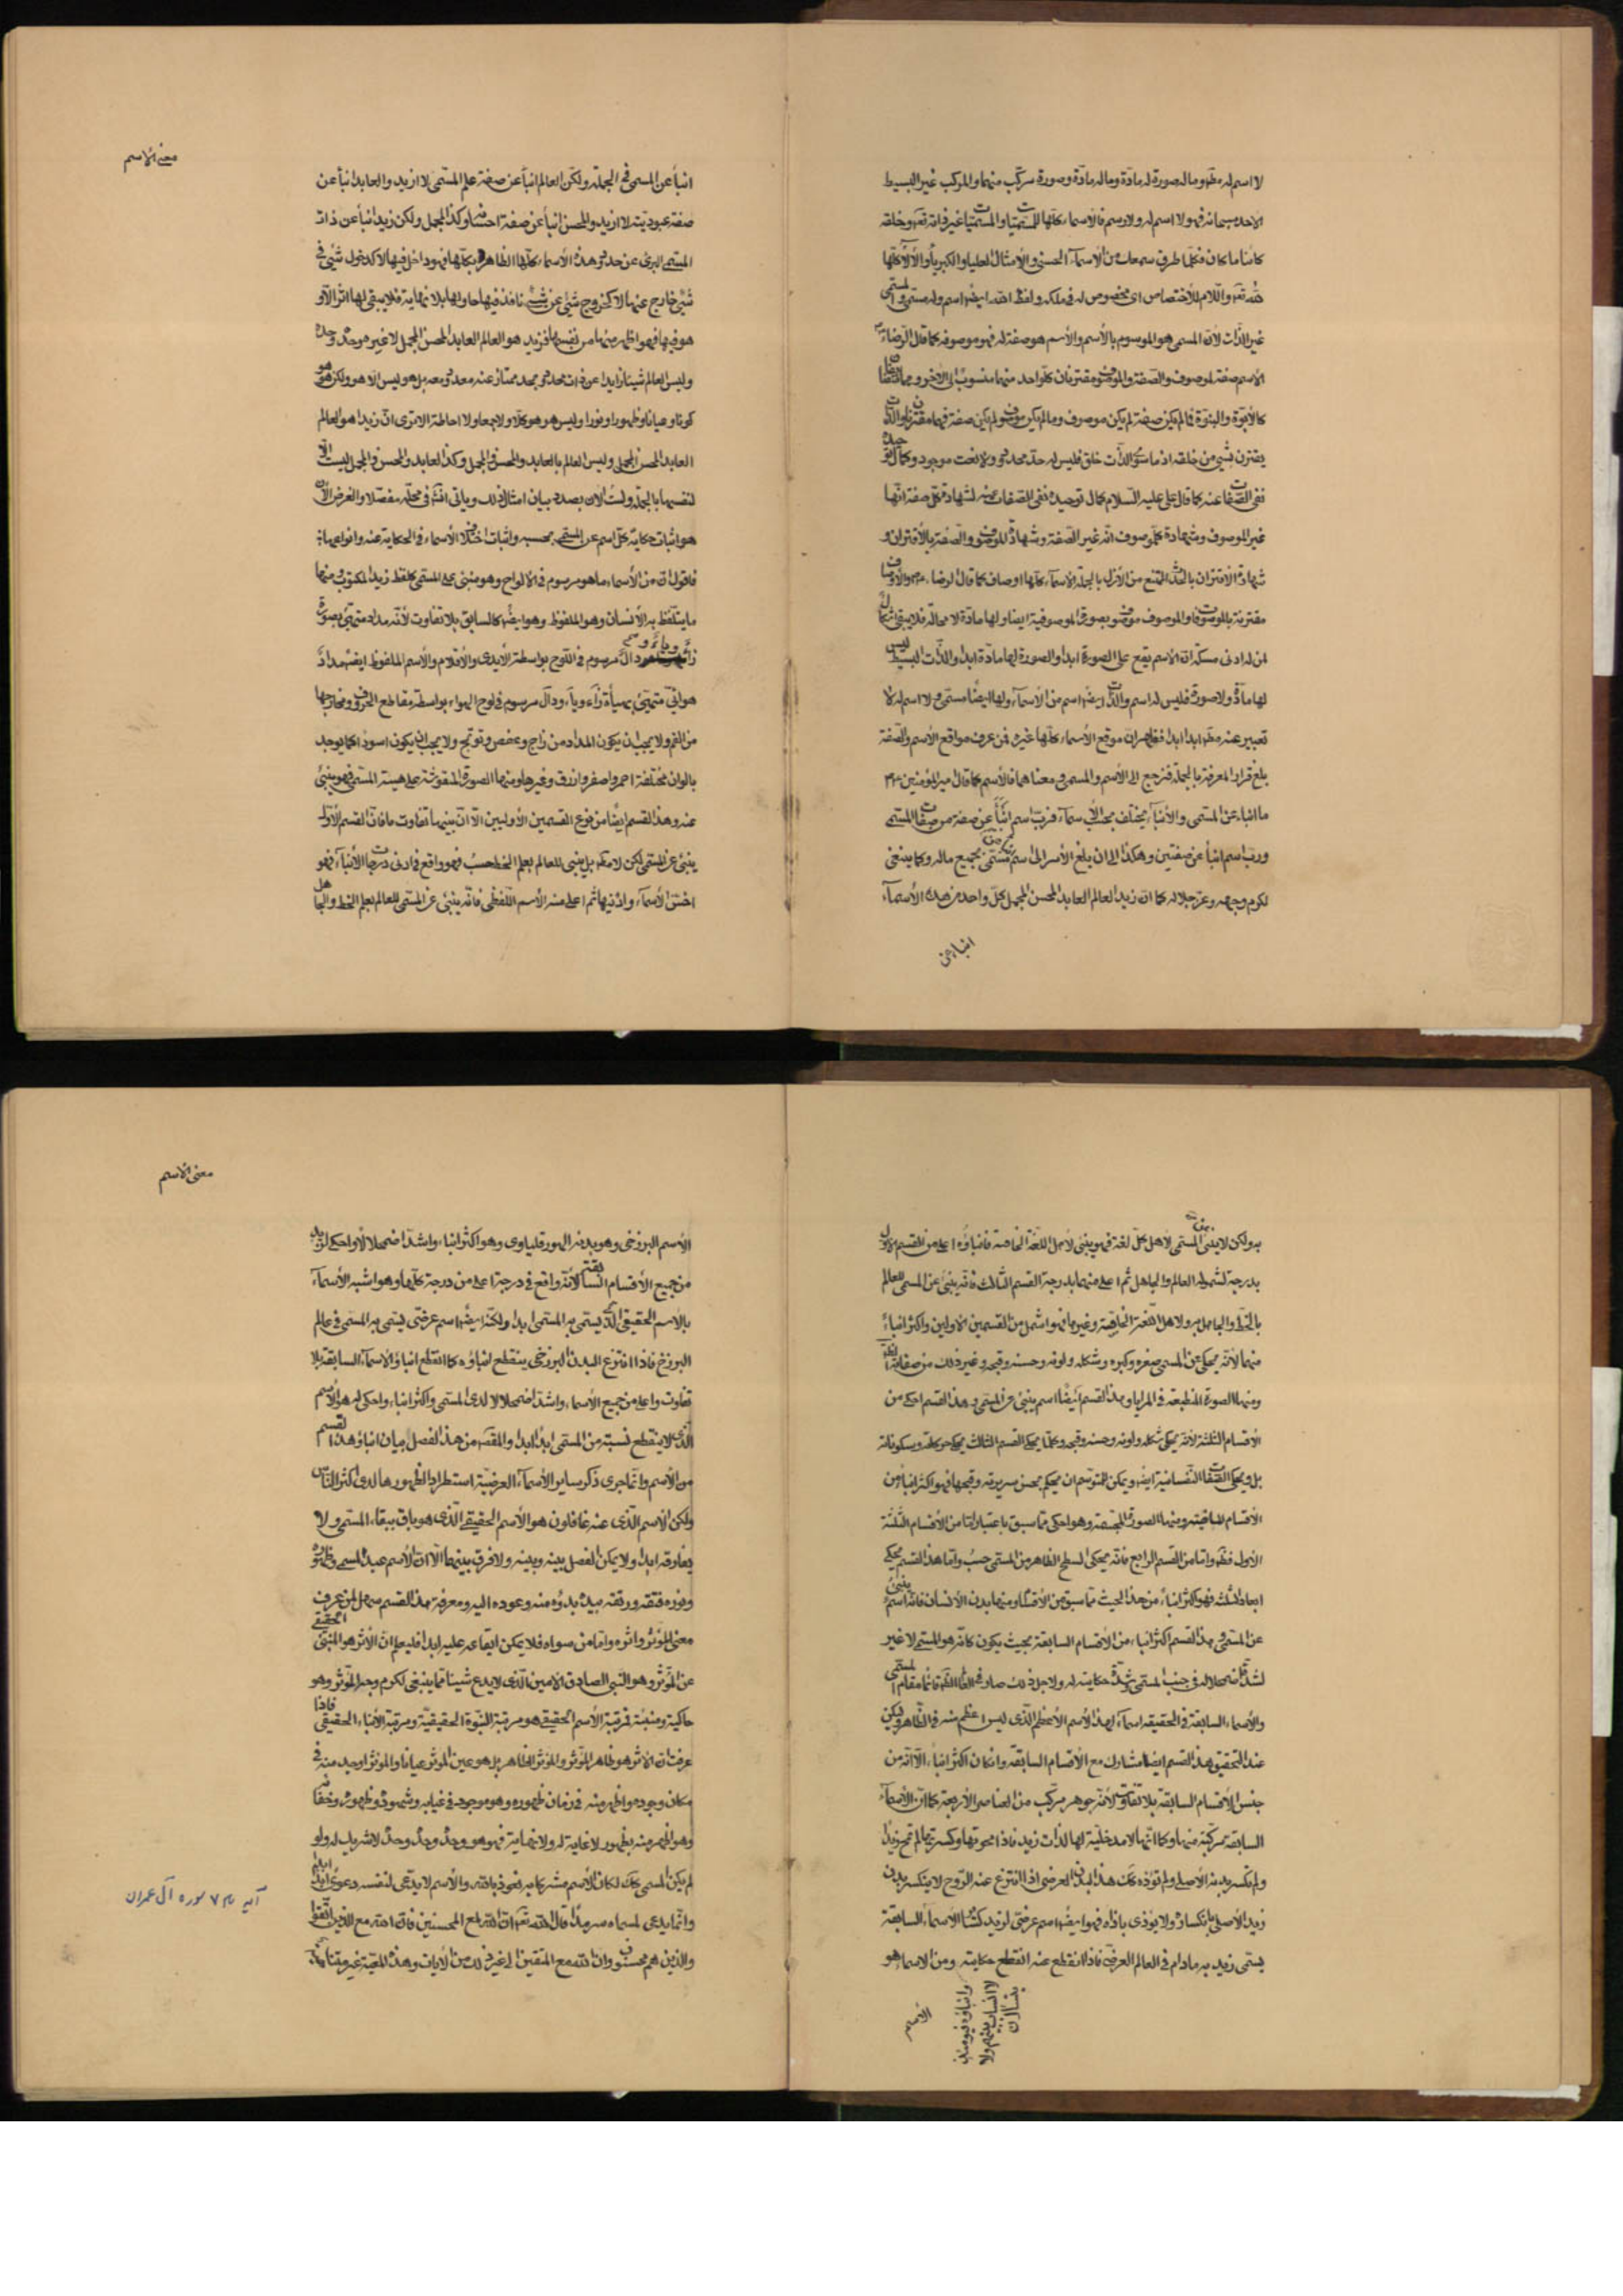 لا اسم له وماله صورة له مادة وماله مادة وصورة مركب منهما والمركب غير البسيط
الاحد سبحانه فهو لا اسم له ولا رسم فالاسماء كلها للمستميا والمستميا غير ذاته تعالى وخلقه
كائنا ما كان فكلما طرق سمعك من الاسماء الحسنى والامثال العليا والكبرياء والآلاء كلها
لله تعالى واللام للاختصاص اى مخصوص له فى ملكه ولفظ الله ايضا اسم وله مسمى والمسمى
غير الذات لان المسمى هو الموسوم بالاسم والاسم هو صفة له فهو موصوف كما قال الرضاء
الاسم صفة لموصوف والصفة والموصوف مقترنان كل واحد منهما منسوب الى الاخر وهما
كالابوة والبنوة فما لم يكن صفة لم يكن موصوف وما لم يكن موصوف لم يكن صفة فهما مقترنان والذات
يقترن بشىء من خلقه اذ ما سوى الذات خلق فليس له حد محدود ولا نعت موجود وكمال توحيده
نفى الصفات عنه كما قال على عليه السلام كمال توحيده نفى الصفات عنه لشهادة كل صفة انها
غير الموصوف وشهادة كل موصوف انه غير الصفة وشهادة الموصوف والصفة بالاقتران و
شهادة الاقتران بالحدث الممتنع من الازل بالجملة الاسماء كلها اوصاف كما قال الرضاء
مقترنة بالموصوف والموصوف موصوف بصورة الموصوفية ايضا ولها مادة لا محالة فلا يبقى
لمن له ادنى مسكة ان الاسم يقع على الصورة ابدا والصورة لها مادة ابدا والذات البسيط ليس
لها مادة ولا صورة فليس له اسم والذات ايضا اسم من الاسماء ولها ايضا مسمى ولا اسم له ولا
تعبير عنه ابدا ابدا فظهر ان موقع الاسماء كلها غيره فمن عرف مواقع الاسم والصفة
بلغ قرار المعرفة بالجملة فنرجع الى الاسم والمسمى ومعناهما فالاسم كما قال امير المؤمنين
ما انباء عن المسمى والانباء يختلف بحسب الاسماء فرب اسم انبأ عن صفة من صفات المسمى
ورب اسم انبأ عن صفتين وهكذا الى ان يبلغ الامر الى اسم المسمى بجميع ماله وكما ينبغى
لكرم وجهه وعز جلاله كما ان زيد العالم العابد المحسن المجمل كل واحد من هذه الاسماء
انباء عن
معنى الاسم
انبأ عن المسمى فى الجملة ولكن العالم انبأ عن صفة علم المسمى لا ازيد والعابد انبأ عن
صفة عبوديته لا ازيد والمحسن انبأ عن صفة احسانه وكذا المجمل ولكن زيد انبأ عن ذات
المسمى البرئ عن حدود هذه الاسماء كلها الظاهرة بكلها فهو داخل فيها لا كدخول شىء فى
شىء خارج عنها لا كخروج شىء عن شىء نافذ فيها حاو لها بلا نهاية فلا يبقى لها اثر الا و
هو فيها فهو اظهر منها من نفسها فزيد هو العالم العابد المحسن المجمل لا غير هو وحده وحده
وليس العالم شيئا زايدا عن ذات محدود بحد ممتاز عنه معدود معه بل هو ليس الا هو ولكن هو هو
كونا وعيانا وظهورا ونورا وليس هو هو كلا ولا جمعا ولا احاطة الا ترى ان زيدا هو العالم
العابد المحسن المجمل وليس العالم بالعابد والمحسن المجمل وكذا العابد والمحسن والمجمل ليست الا
لنفسها بالجملة ولست الان بصدد بيان امثال ذلك وياتى انشاء فى محله مفصلا والغرض الان
هو اثبات حكاية كل اسم عن المسمى بحسبه واثبات اختلاف الاسماء فى الحكاية عنه وانواعها:
فاقول ان من الاسماء ما هو مرسوم فى الالواح وهو منبئ عن المسمى كلفظ زيد المكتوب ومنها
ما يتلفظ به الانسان وهو الملفوظ وهو ايضا كالسابق بلا تفاوت لانه مداد متهيئ بصورة
زاء وياء ودال مرسوم فى اللوح بواسطة الايدى والاقلام والاسم الملفوظ ايضا مداد
هوائى متهيئ بهيأة زاء وياء ودال مرسوم فى لوح الهواء بواسطة مقاطع الحروف ومخارجها
من الفم ولا يجب ان يكون المداد من زاج وعفص وتوتج ولا يجب ان يكون اسود اكما يوجد
بالوان مختلفة احمر واصفر وازرق وغيرها ومنها الصورة المنقوشة على هيئة المسمى فهو ينبئ
عنه وهذا القسم ايضا من نوع القسمين الاوليين الا ان بينهما تفاوت ما فان القسم الاول
ينبئ عن المسمى لكن لا مطلقا بل ينبئ للعالم بعلم الخط حسب فهو واقع فى ادنى درجات الانباء فهو
اخس الاسماء وادنيها ثم اعلى منه الاسم اللفظى فانه ينبئ عن المسمى للعالم بعلم الخط والجاهل
به ولكن لا ينبئ عن المسمى لاهل كل لغة فهو ينبئ لاهل اللغة الخاصة فانباؤه اعلى من القسم الاول
بدرجة لشموله العالم والجاهل ثم اعلى منهما بدرجة القسم الثالث فانه ينبئ عن المسمى للعالم
بالخط والجاهل به ولاهل اللغة الخاصة وغيرها فهو اشمل من القسمين الاولين واكثر انباء
منهما لانه يحكى عن المسمى صغره وكبره وشكله ولونه وحسنه وقبحه وغير ذلك من صفاته
ومنها الصورة المنطبعة فى المرايا وهذا القسم ايضا اسم ينبئ عن المسمى وهذا القسم احكى من
الاقسام الثلثة لانه يحكى شكله ولونه وحسنه وقبحه وكلما يحكى القسم الثالث يحكى حركاته وسكوناته
بل ويحكى الصفات النفسانية ايضا ويمكن للمتوسم ان يحكم بحسن سريرته وقبحها فهو اكثر انباء من
الاقسام السابقة ومنها الصورة المجسمة وهو احكى مما سبق باعتبار اما من الاقسام الثلثة
الاول فظهر واما من القسم الرابع فانه يحكى السطح الظاهر من المسمى حسب واما هذا القسم يحكى
ابعاد الثلثة فهو اكثر انباء من هذا الحيث مما سبق من الاقسام ومنها بدن الانسان فانه اسم ينبئ
عن المسمى وهذا القسم اكثر انباء من الاقسام السابقة بحيث يكون كانه هو المسمى لا غير
لشدة اضمحلاله فى جنب المسمى وشدة حكايته له ولاجل ذلك صار فى العالم الظاهر قائما مقام المسمى
والاسماء السابقة فى الحقيقة اسماء لهذا الاسم الاعظم الذى ليس اعظم منه فى الظاهر ولكن
عند التحقيق هذا القسم ايضا مشارك مع الاقسام السابقة وان كان اكثر انباء الا انه من
جنس الاقسام السابقة بلا تفاوت لانه جوهر مركب من العناصر الاربعة كما ان الاسماء
السابقة مركبة منها وكما انها لا مدخلية لها لذات زيد فاذا محوتها وكسرتها لم تمح زيدا
ولم تكسر بدنه الاصلى ولم تؤذه كك هذا البدن العرضى اذا انتزع عنه الروح لا ينكسر بدن
زيد الاصلى بانكساره ولا يؤذى باذاه فهو ايضا اسم عرضى لزيد كسائر الاسماء السابقة
يسمى زيد به مادام فى العالم العرضى فاذا انقطع عنه انقطع حكايته ومن الاسماء هو
وانباؤه فيومئذ
لا انساب بينهم ولا
يتسائلون
الاسم
معنى الاسم
الاسم البرزخى وهو بدنه الهورقلياوى وهو اكثر انباء واشد اضمحلالا واحكى لزيد
من جميع الاقسام السابقة لانه واقع فى درجة اعلى من درجة كلها وهو اشبه الاسماء
بالاسم الحقيقى الذى يسمى به المسمى ابدا ولكنه ايضا اسم عرضى يسمى به المسمى فى عالم
البرزخ فاذا انتزع البدن البرزخى ينقطع انباؤه كما انقطع انباؤ الاسماء السابقة بلا
تفاوت واعلى من جميع الاسماء واشد اضمحلالا لدى المسمى واكثر انباء واحكى له هو الاسم
الذى لا ينقطع نسبته من المسمى ابدا ابدا والمقصد من هذا الفصل بيان انباؤ هذا القسم
من الاسم وانما جرى ذكر ساير الاسماء العرضية استطرادا لظهورها لدى اكثر الناس
ولكن الاسم الذى عنه غافلون هو الاسم الحقيقى الذى هو باق ببقاء المسمى ولا
يفارقه ابدا ولا يمكن الفصل بينه وبينه ولا فرق بينهما الا ان الاسم عبد المسمى وظهوره
ونوره فتقه ورتقه بيده بدؤه منه وعوده اليه ومعرفة هذا القسم سهل لمن عرف
معنى المؤثر واثره واما من سواه فلا يمكن ايقاعه عليه ابدا فليعلم ان الاثر هو المنبئ الحقيقى
عن المؤثر وهو النبى الصادق الامين الذى لا يدع شيئا مما ينبغى لكرم وجه المؤثر وهو
حاكيه ومنبئه فمرتبة الاسم الحقيقى هو مرتبة النبوة الحقيقية ومرتبة الانباء الحقيقى فاذا
عرفت ان الاثر هو ظاهر المؤثر والمؤثر الظاهر بل هو عين المؤثر عيانا والمؤثر اوجد منه فى
مكان وجوده واظهر منه فى زمان ظهوره وهو موجود فى غيابه وشهوده وظهوره وخفائه
وهو اظهر منه بظهور لا غاية له ولا نهاية فهو هو وحده وحده وحده لا شريك له ولو
لم يكن المسمى كك لكان الاسم مشركا به نعوذ بالله والاسم لا يدعى لنفسه دعوى ابدا
وانما يدعى لمسماه سرمدا قال الله تعالى ان الله لمع المحسنين فان الله مع الذين اتقوا
والذين هم محسنون وان الله مع المتقين الى غير ذلك من الايات وهذه المعية غير متناهية
آيه ٧ سوره آل عمران